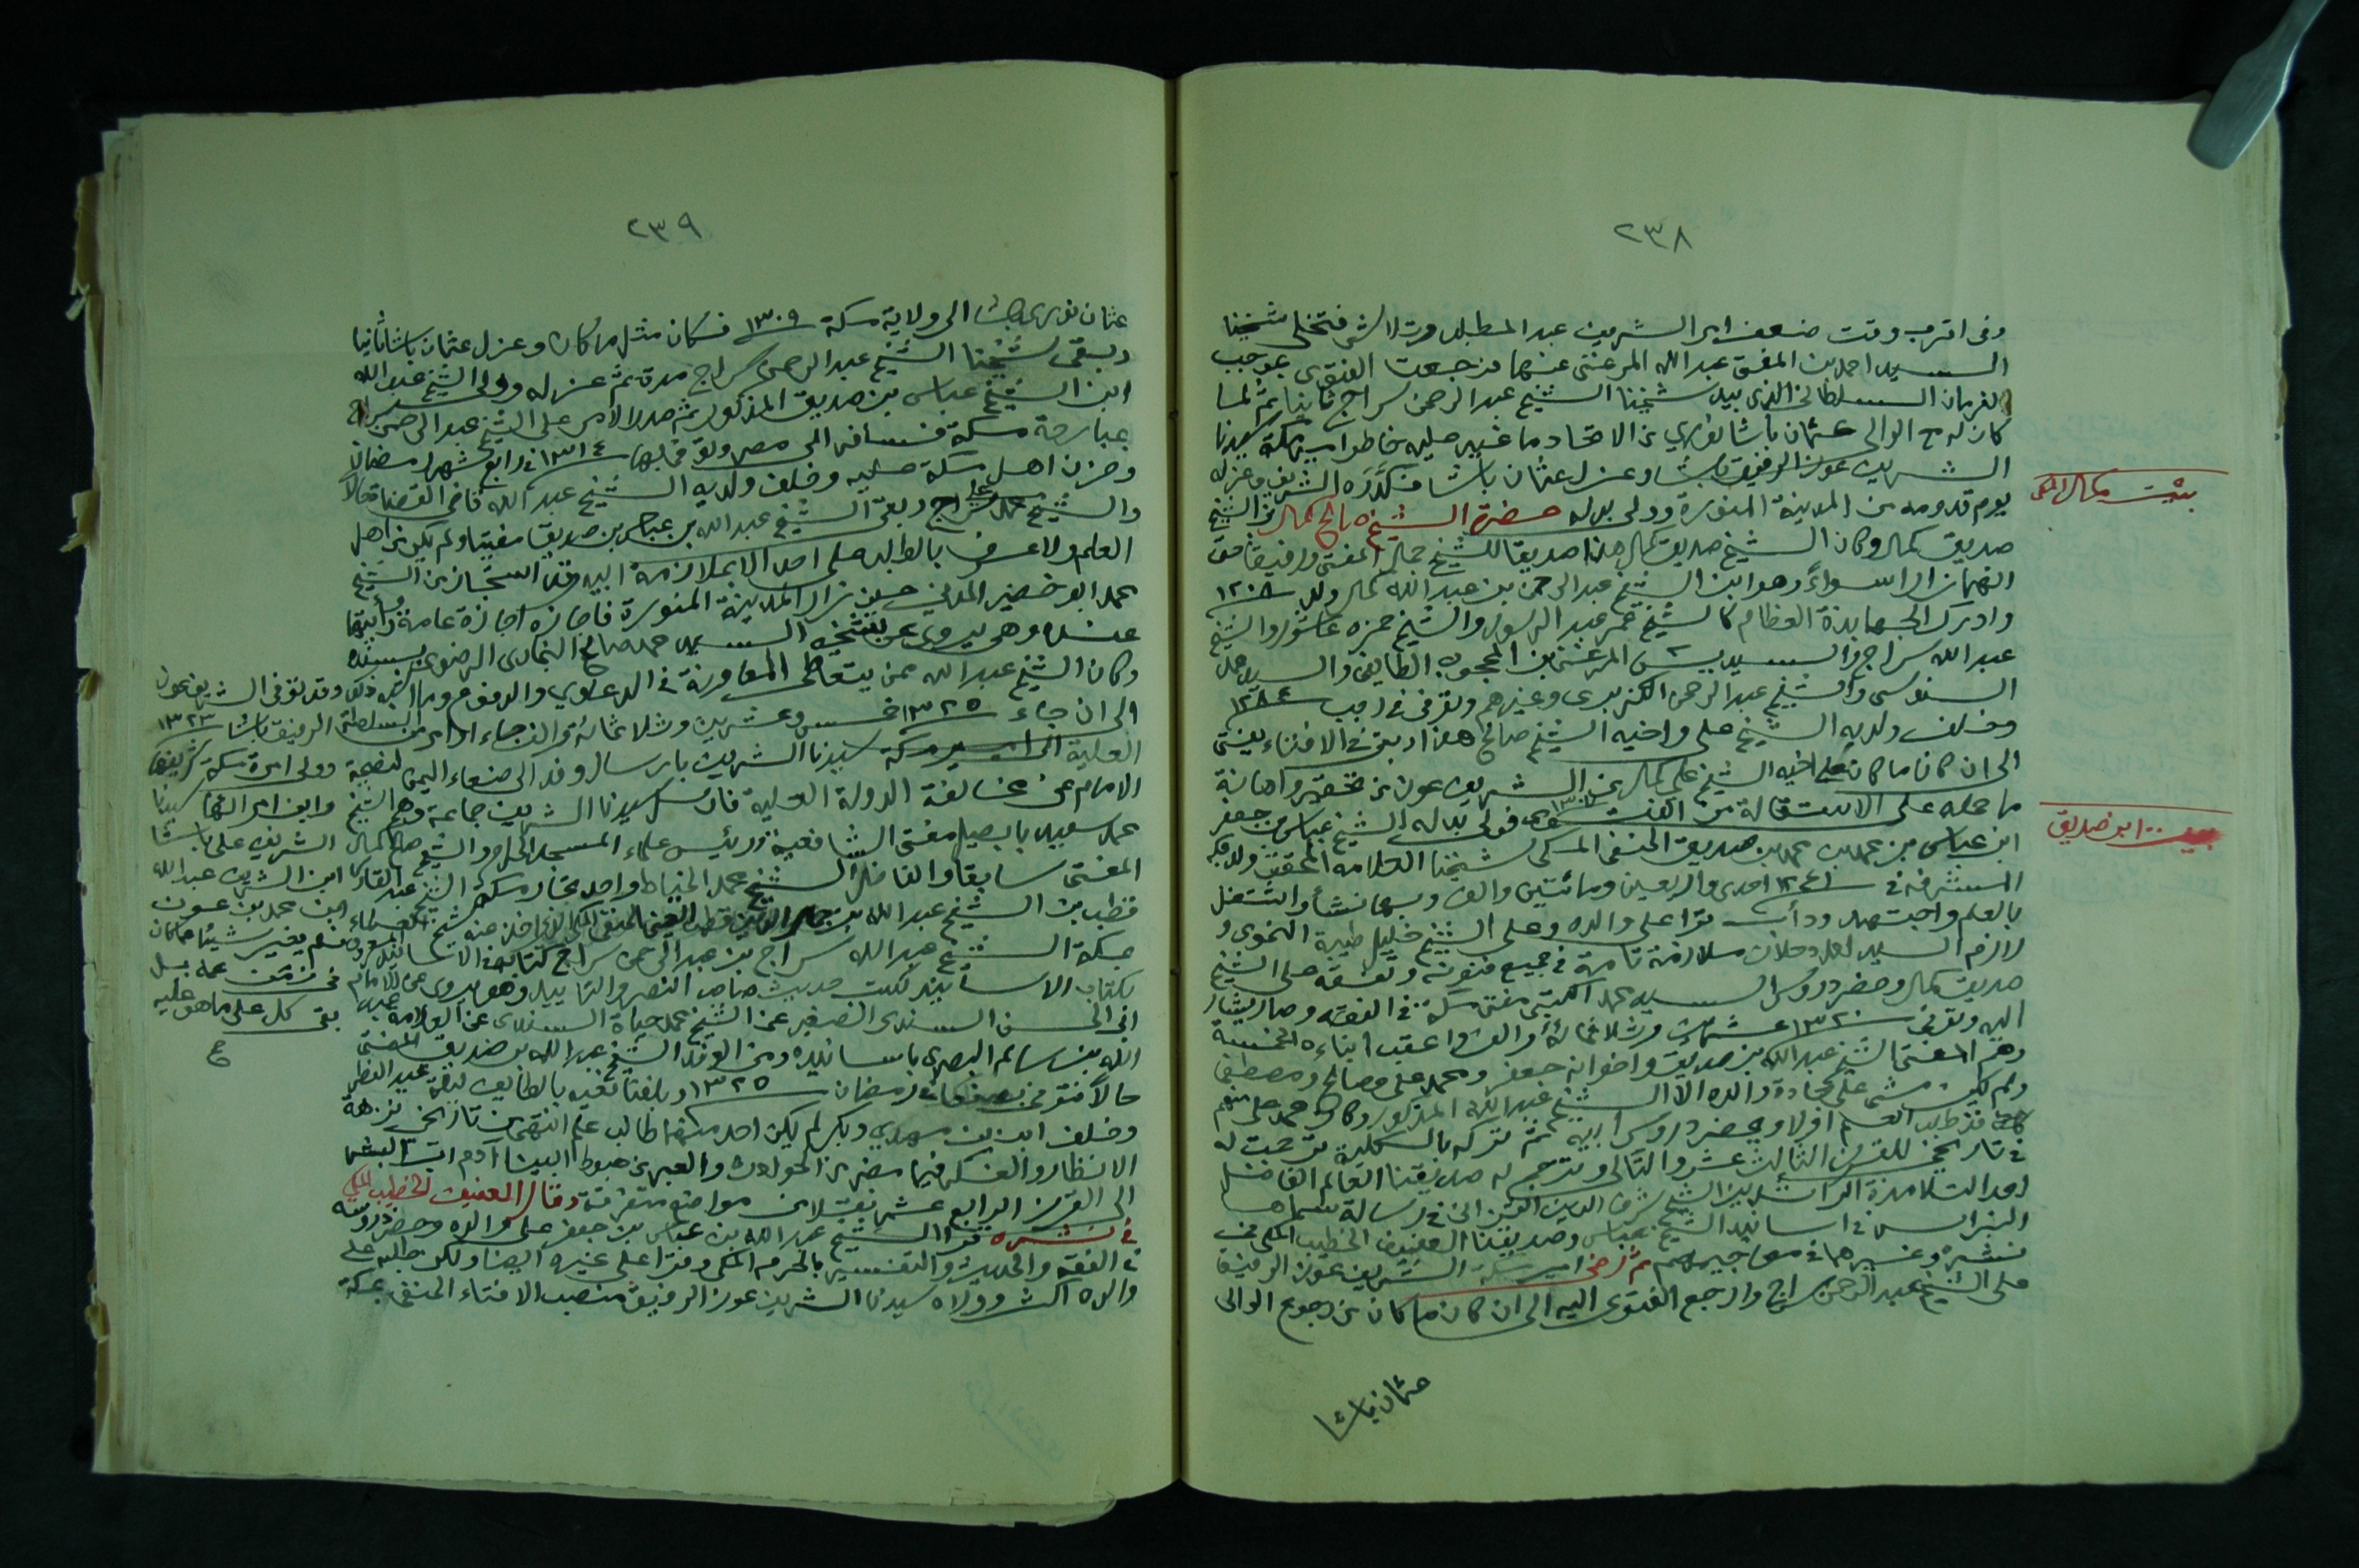 ٢٣٨
وفى اقرب وقت ضعف امر الشريف عبد المطلب فتخلى شيخنا
السيد احمد بن المفتى عبد الله المرغنى عنها فرجعت الفتوى بموجب
الفرمان السلطانى الذى بيد شيخنا الشيخ عبد الرحمن سراج ثانيا ثم لما
كان له مع الوالى عثمان باشا نورى من الاتحاد ما غير عليه خاطر امير مكة سيدنا
الشريف عون الرفيق باشا وعزل عثمان باشا فكدره الشريف وعزله
يوم قدومه من المدينة المنورة وولى بدله حضرة الشيخ صالح كمال بن الشيخ
صديق كمال وكان الشيخ صديق كمال هذا صديقا للشيخ جمال المفتى ورفيقا
وهو ابن الشيخ عبد الرحمن بن عبد الله كمال ولد ١٢٠٨
وادرك الجهابذة العظام كالشيخ عمر عبد الرسول والشيخ حمزه عاشور والشيخ
عبد الله سراج والسيد يس المرغنى بن المحجوب الطايفى والسيد محمد
السنوسى والشيخ عبد الرحمن الكزبرى وغيرهم وتوفى فى رجب ١٢٨٤
وخلف ولديه الشيخ على واخيه الشيخ صالح هذا وبقى فى الافتاء يفتى
الى ان كان ما كان على اخيه الشيخ على كمال من الشريف عون من تحقير واهانة
ما حمله على الاستقالة من الفتوى ١٣٠٧ فولى بدله الشيخ عباس بن جعفر
ابن عباس بن محمد بن صديق الحنفى المكى شيخنا العلامة المحقق ولد بمكة
المشرفة فى ١٢٤١ احدى واربعين ومائتين والف وبها نشأ واشتغل
بالعلم واجتهد ودأب قرا على والده وعلى الشيخ خليل طيبة النحوى و
لازم السيد احمد دحلان ملازمة تامة فى جميع فنونه وتفقه على الشيخ
صديق كمال وحضر دروس السيد محمد الكتبى مفتى مكة فى الفقه وصار يشار
اليه وتوفى ١٣٢٠ عشرين وثلاثمائة والف واعقب ابناءه الخمسة
وهم المفتى الشيخ عبد الله بن صديق واخوانه جعفر ومحمد على وصالح ومصطفى
ولم يكن مشى على جادة والده الا الشيخ عبد الله المذكور وكان محمد على منهم
قد طلب العلم اولا ويحضر دروس ابيه ثم تركه بالكلية ترجمت له
فى تاريخى للقرن الثالث عشر والتالى وترجم له صديقنا العالم الفاضل
احد التلامذة الراشدين الشيخ شرف الدين القزانى فى رسالة سماها
النبراس فى اسانيد الشيخ عباس وصديقنا العفيف الخطيب المكى فى
نشره وغيرهما فى معاجيمهم ثم رضى امير مكة الشريف عون الرفيق
على الشيخ عبد الرحمن سراج وارجع الفتوى اليه الى ان كان ما كان من رجوع الوالى
عثمان باشا
بيت كمال المكى
بيت ابو صديق
٢٣٩
عثمان نورى باشا الى ولاية مكة ١٣٠٩ فكان مثل ما كان وعزل عثمان باشا ثانيا
وبقى شيخنا الشيخ عبد الرحمن سراج مدة ثم عزله وولى الشيخ عبد الله
ابن الشيخ عباس بن صديق المذكور ثم صدر الامر على الشيخ عبد الرحمن سراج
بمبارحة مكة فسافر الى مصر وتوفى بها ١٣١٤ فى رابع شهر رمضان
وحزن اهل مكة عليه وخلف ولديه الشيخ عبد الله قاضى القضاة حالا
والشيخ محمد على سراج وبقى الشيخ عبد الله بن عباس بن صديق مفتيا ولم يكن من اهل
العلم ولا عرف بالطلب على احد الا بملازمة ابيه وقد استجاز من الشيخ
محمد ابو خضير المدنى حين زار المدينة المنورة فاجازه اجازة عامة رأيتها
عنده وهى يروى عن شيخه السيد محمد صالح البخارى الرضوى بسنده
وكان الشيخ عبد الله ممن يتعاطى المعاونة فى الدعاوى والدفوع وما اشبه ذلك
الى ان جاء ١٣٢٥ خمس وعشرين وثلاثمائة والف جاء امر من السلطنة
العلية الى امير مكة سيدنا الشريف بارسال وفد الى صنعاء اليمن لنصيحة
الامام عن مخالفة الدولة العلية فارسل سيدنا الشريف جماعة وهم الشيخ
محمد سعيد بابصيل مفتى الشافعية ورئيس علماء المسجد الحرام والشيخ صالح كمال
المفتى سابقا والفاضل الشيخ محمد الخياط واحد تجار مكة الشيخ عبد القادر
قطب بن الشيخ عبد الله
بمكة الشيخ عبد الله سراج بن عبد الرحمن سراج
بكتاب الاسانيد لكتب حديث وهو يروى عن الامام
ابى الحسن السندى الصغير عن الشيخ محمد حياة السندى عن العلامة عبد
الله بن سالم البصرى باسانيده ومن الوفد الشيخ عبد الله بن صديق المفتى
حالا فتوفى بصنعاء فى رمضان ١٣٢٥ وبلغنا نعيه بالطايف ليلة عيد الفطر
وخلف ابنين مهدى وبكر لم يكن احد منهما طالب علم انتهى من تاريخى نزهة
الانظار والفكر فيما مضى من الحوادث والعبر من هبوط ابينا آدم ابى البشر
الى القرن الرابع عشر نقلا من مواضع متفرقة وقال العفيف الخطيب المكى
فى نشره قرا الشيخ عبد الله بن عباس بن جعفر على والده وحضر دروسه
فى الفقه والحديث والتفسير بالحرم المكى وقرا على غيره ايضا ولكن طلبه على
والده اكثر وولاه سيدنا الشريف عون الرفيق منصب الافتاء الحنفى بمكة
وقد توفى الشريف عون
الرفيق باشا ١٣٢٣
وولى امرة مكة شريفها
وابن امرائها سيدنا
الشريف على باشا
ابن الشريف عبد الله
ابن محمد بن عون
فلم يغير شيئا مما كان
فى زمن عمه بل
بقى كل على ما هو عليه
صح